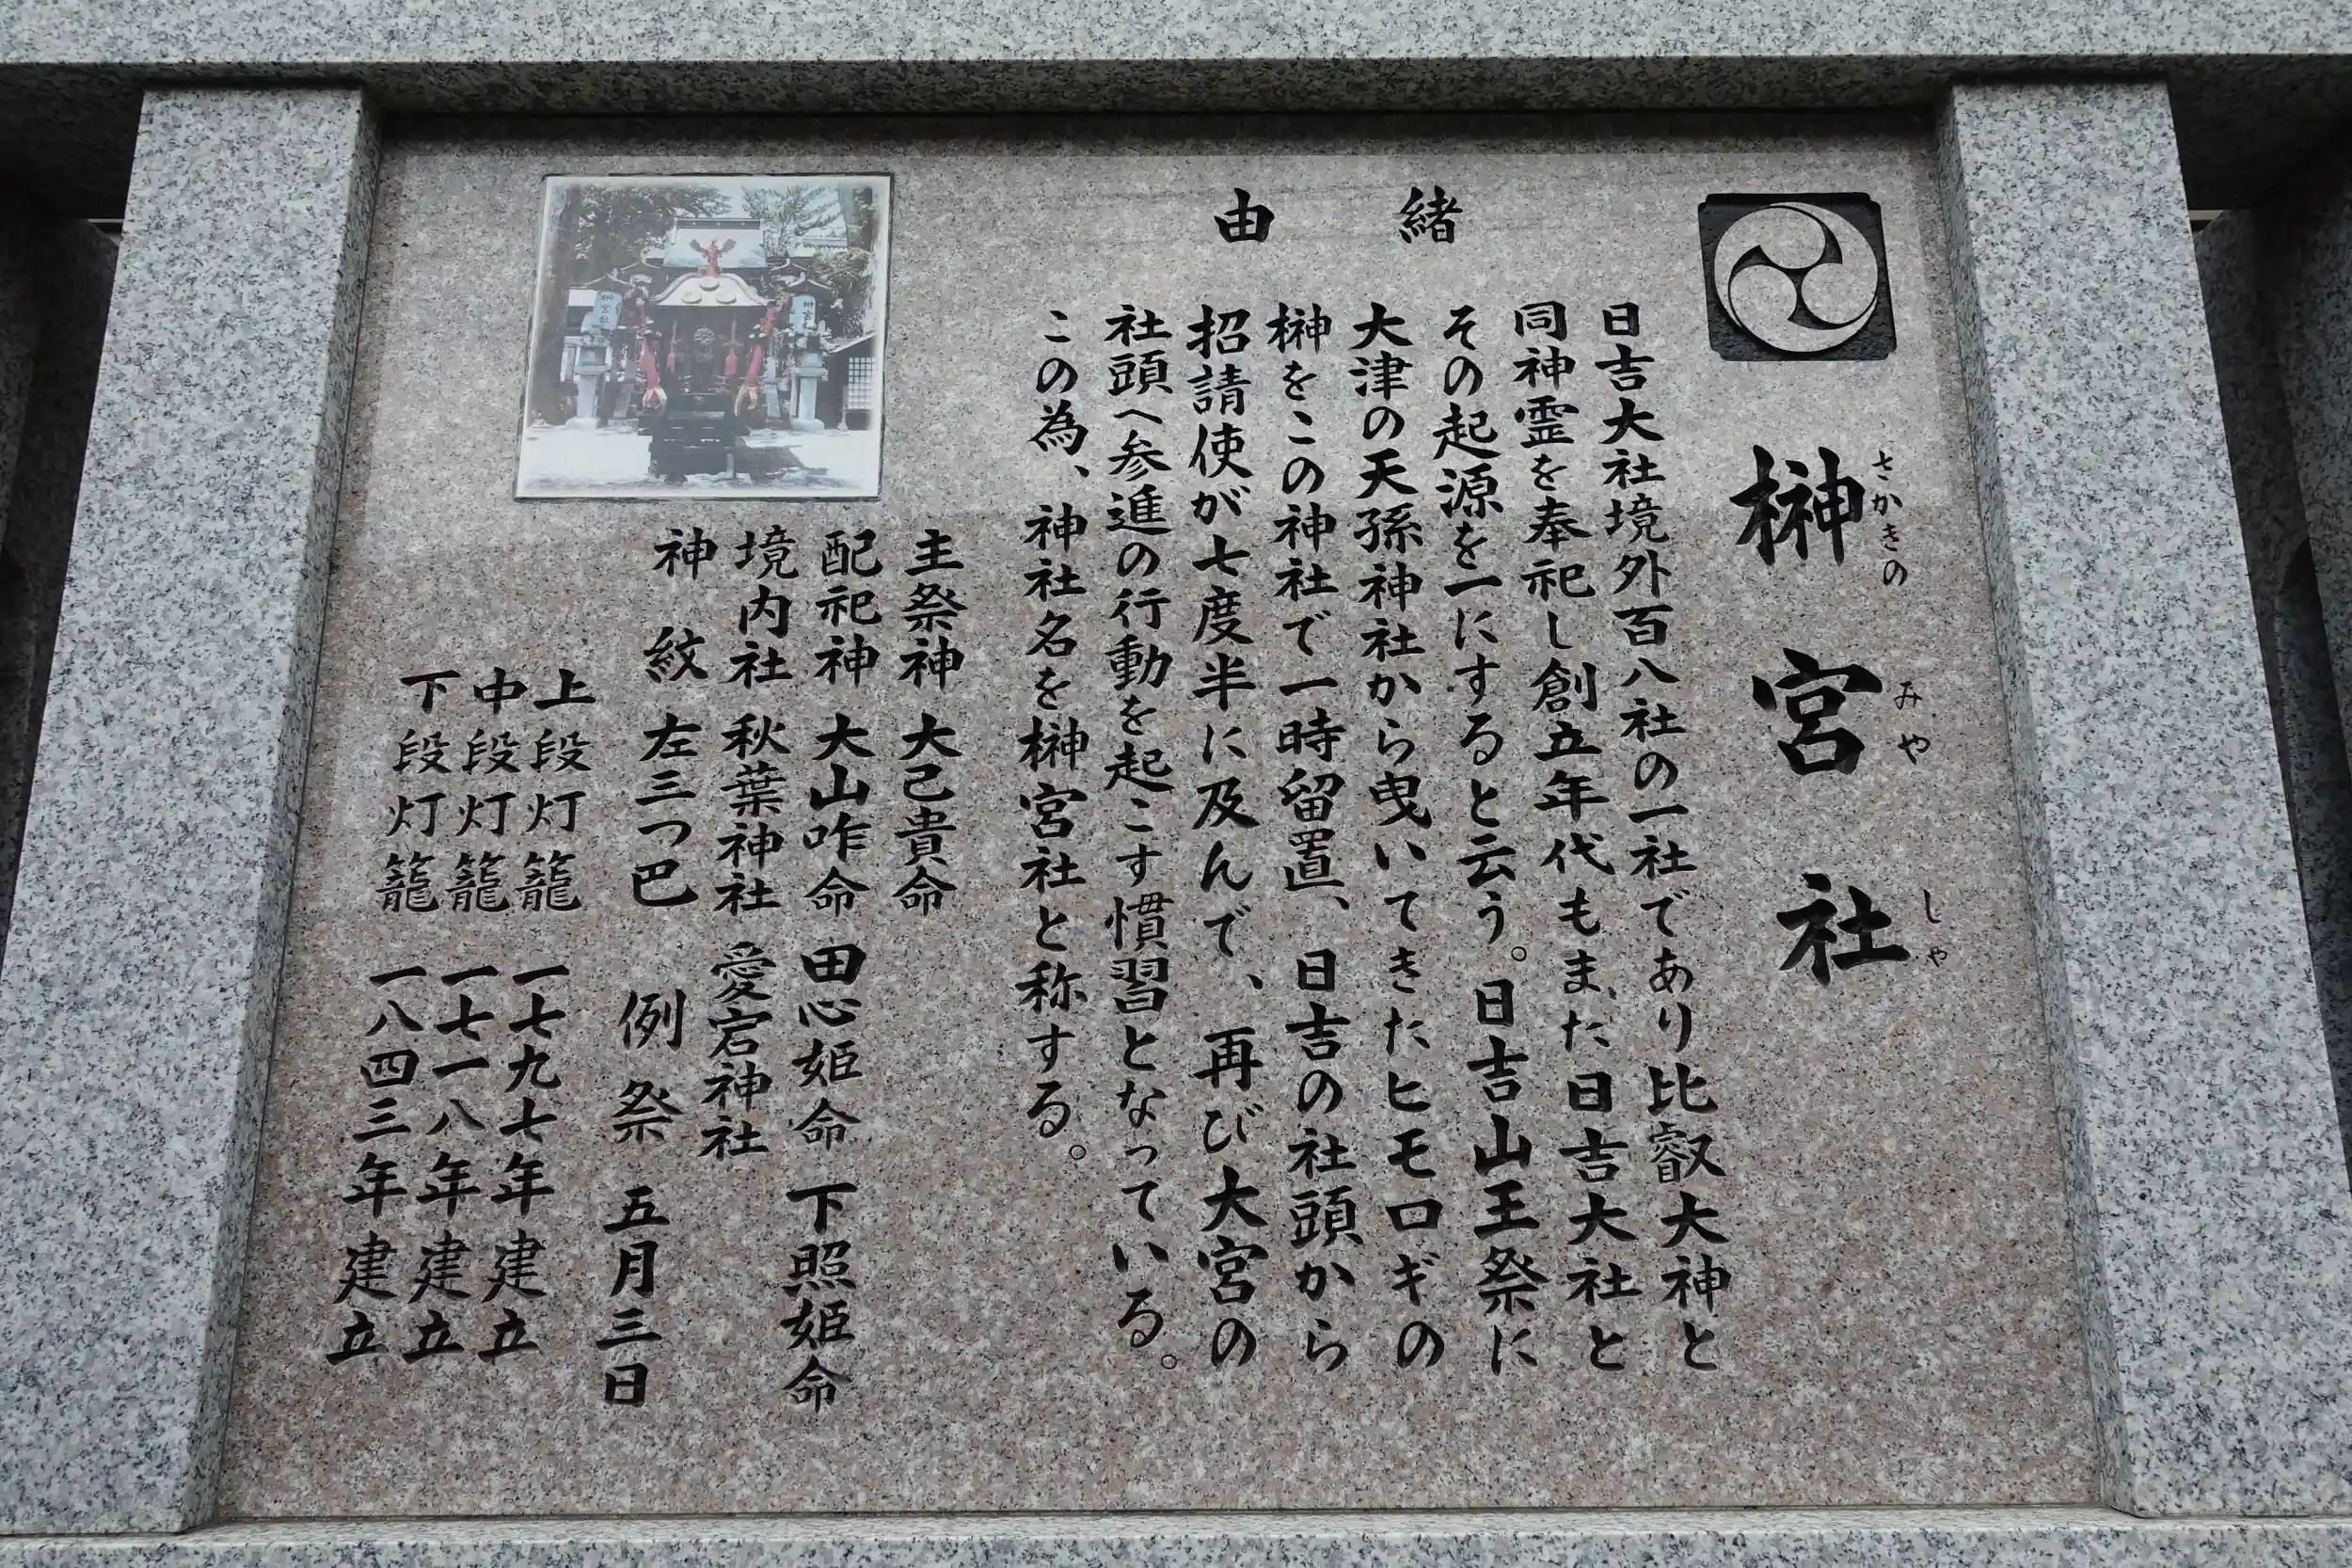 榊宮社
さかきの みや しゃ
由緒
日吉大社境外百八社の一社であり比叡大神と
同神霊を奉祀し創立年代もまた日吉大社と
その起源を一にすると云う。日吉山王祭に
大津の天孫神社から曳いてきたヒモロギの
榊をこの神社で一時留置、日吉の社頭から
招請使が七度半に及んで、再び大宮の
社頭へ参進の行動を起こす慣習となっている。
この為、神社名を榊宮社と称する。
主祭神 大己貴命
配祀神 大山咋命 田心姫命 下照姫命
境内社 秋葉神社 愛宕神社
神紋 左三つ巴 例祭 五月三日
上段灯籠 一七九七年建立
中段灯籠 一七一八年建立
下段灯籠 一八四三年建立
榊宮社